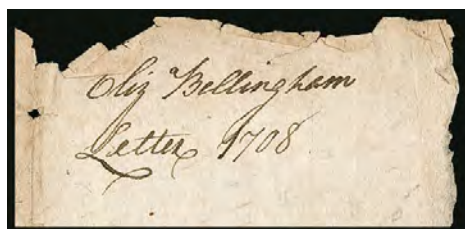 Eliz Bellingham
Letter 1708